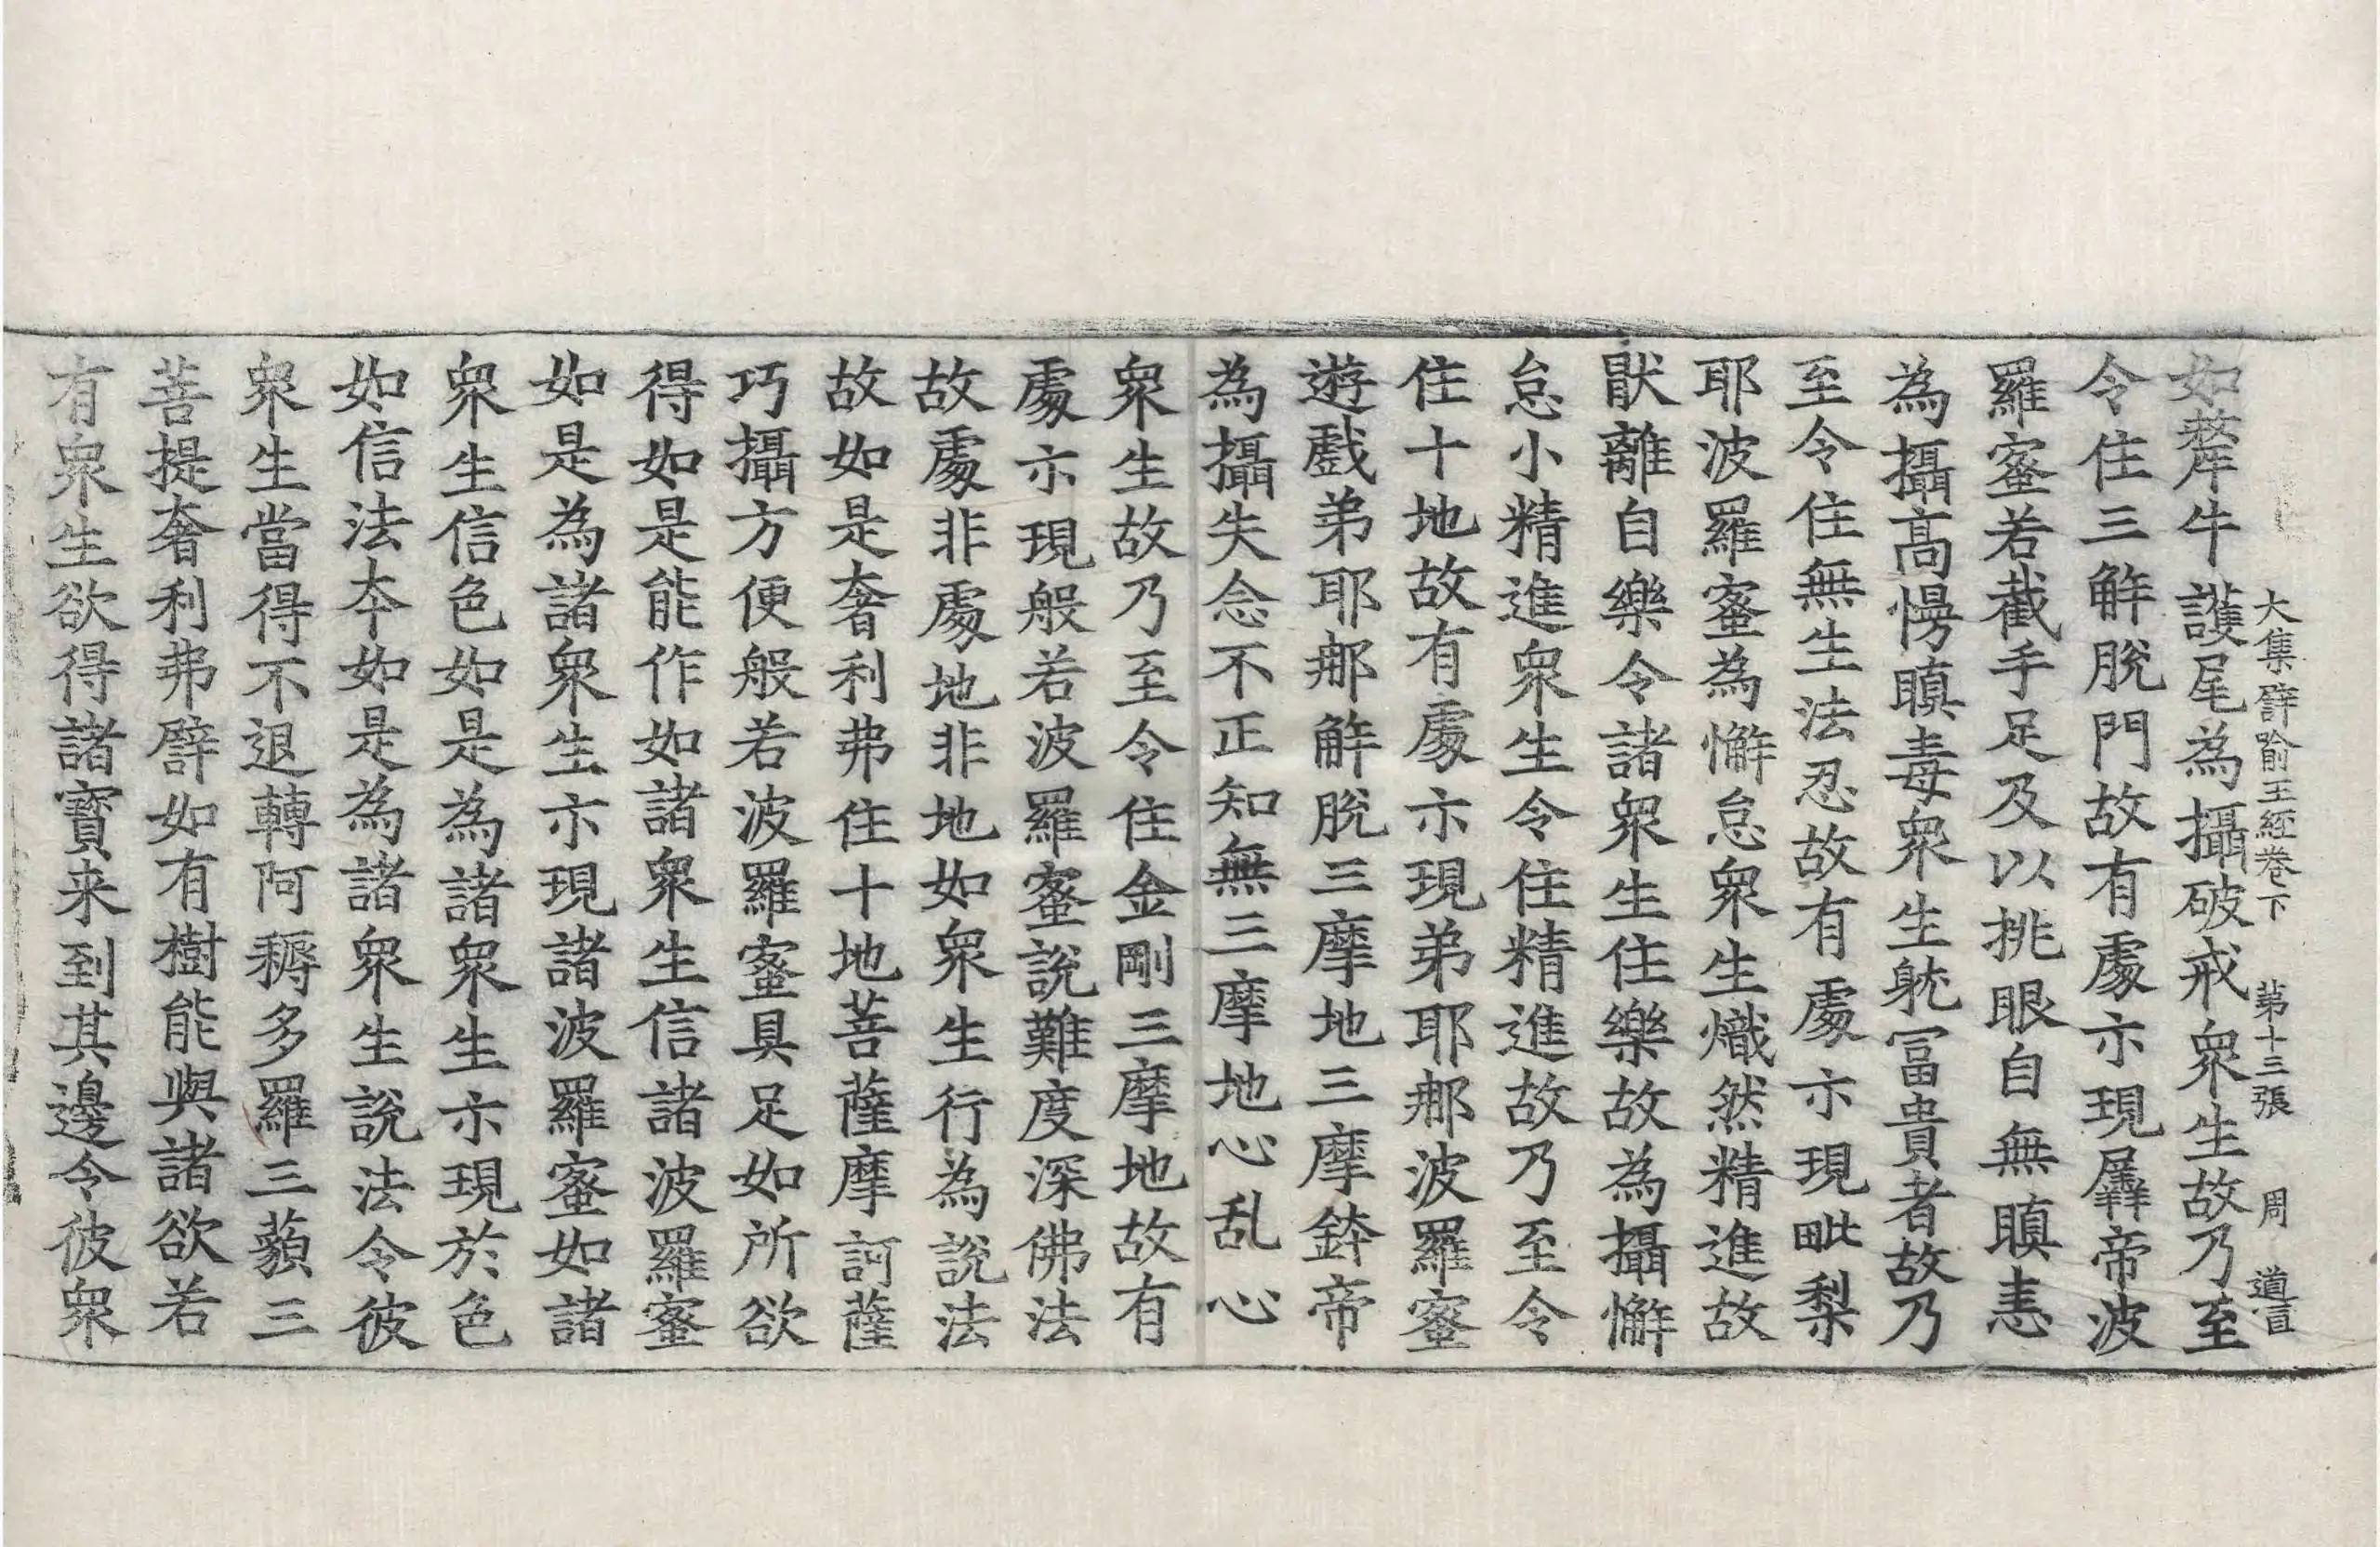 如犛牛護尾為攝破戒衆生故乃至
大集譬喻王経卷下 第十三張 周 道言
令住三解脫門故有處示現羼帝波
羅蜜若截手足及以挑眼自無瞋恚
為攝高慢瞋毒衆生躭冨貴者故乃
至令住無生法忍故有處示現毗梨
耶波羅蜜為懈怠衆生熾然精進故
猒離自樂令諸衆生住樂故為攝懈
怠小精進衆生令住精進故乃至令
住十地故有處示現弟耶那波羅蜜
遊戲弟耶那解脫三摩地三摩鉢帝
為攝失念不正知無三摩地心乱心
衆生故乃至令住金剛三摩地故有
處示現般若波羅蜜說難度深佛法
故處非處地非地如衆生行為說法
故如是奢利弗住十地菩薩摩訶薩
巧攝方便般若波羅蜜具足如所欲
得如是能作如諸衆生信諸波羅蜜
如是為諸衆生示現諸波羅蜜如諸
衆生信色如是為諸衆生示現於色
如信法夲如是為諸衆生說法令彼
衆生當得不退轉阿耨多羅三藐三
菩提奢利弗譬如有樹能與諸欲若
有衆生欲得諸寶来到其邊令彼衆